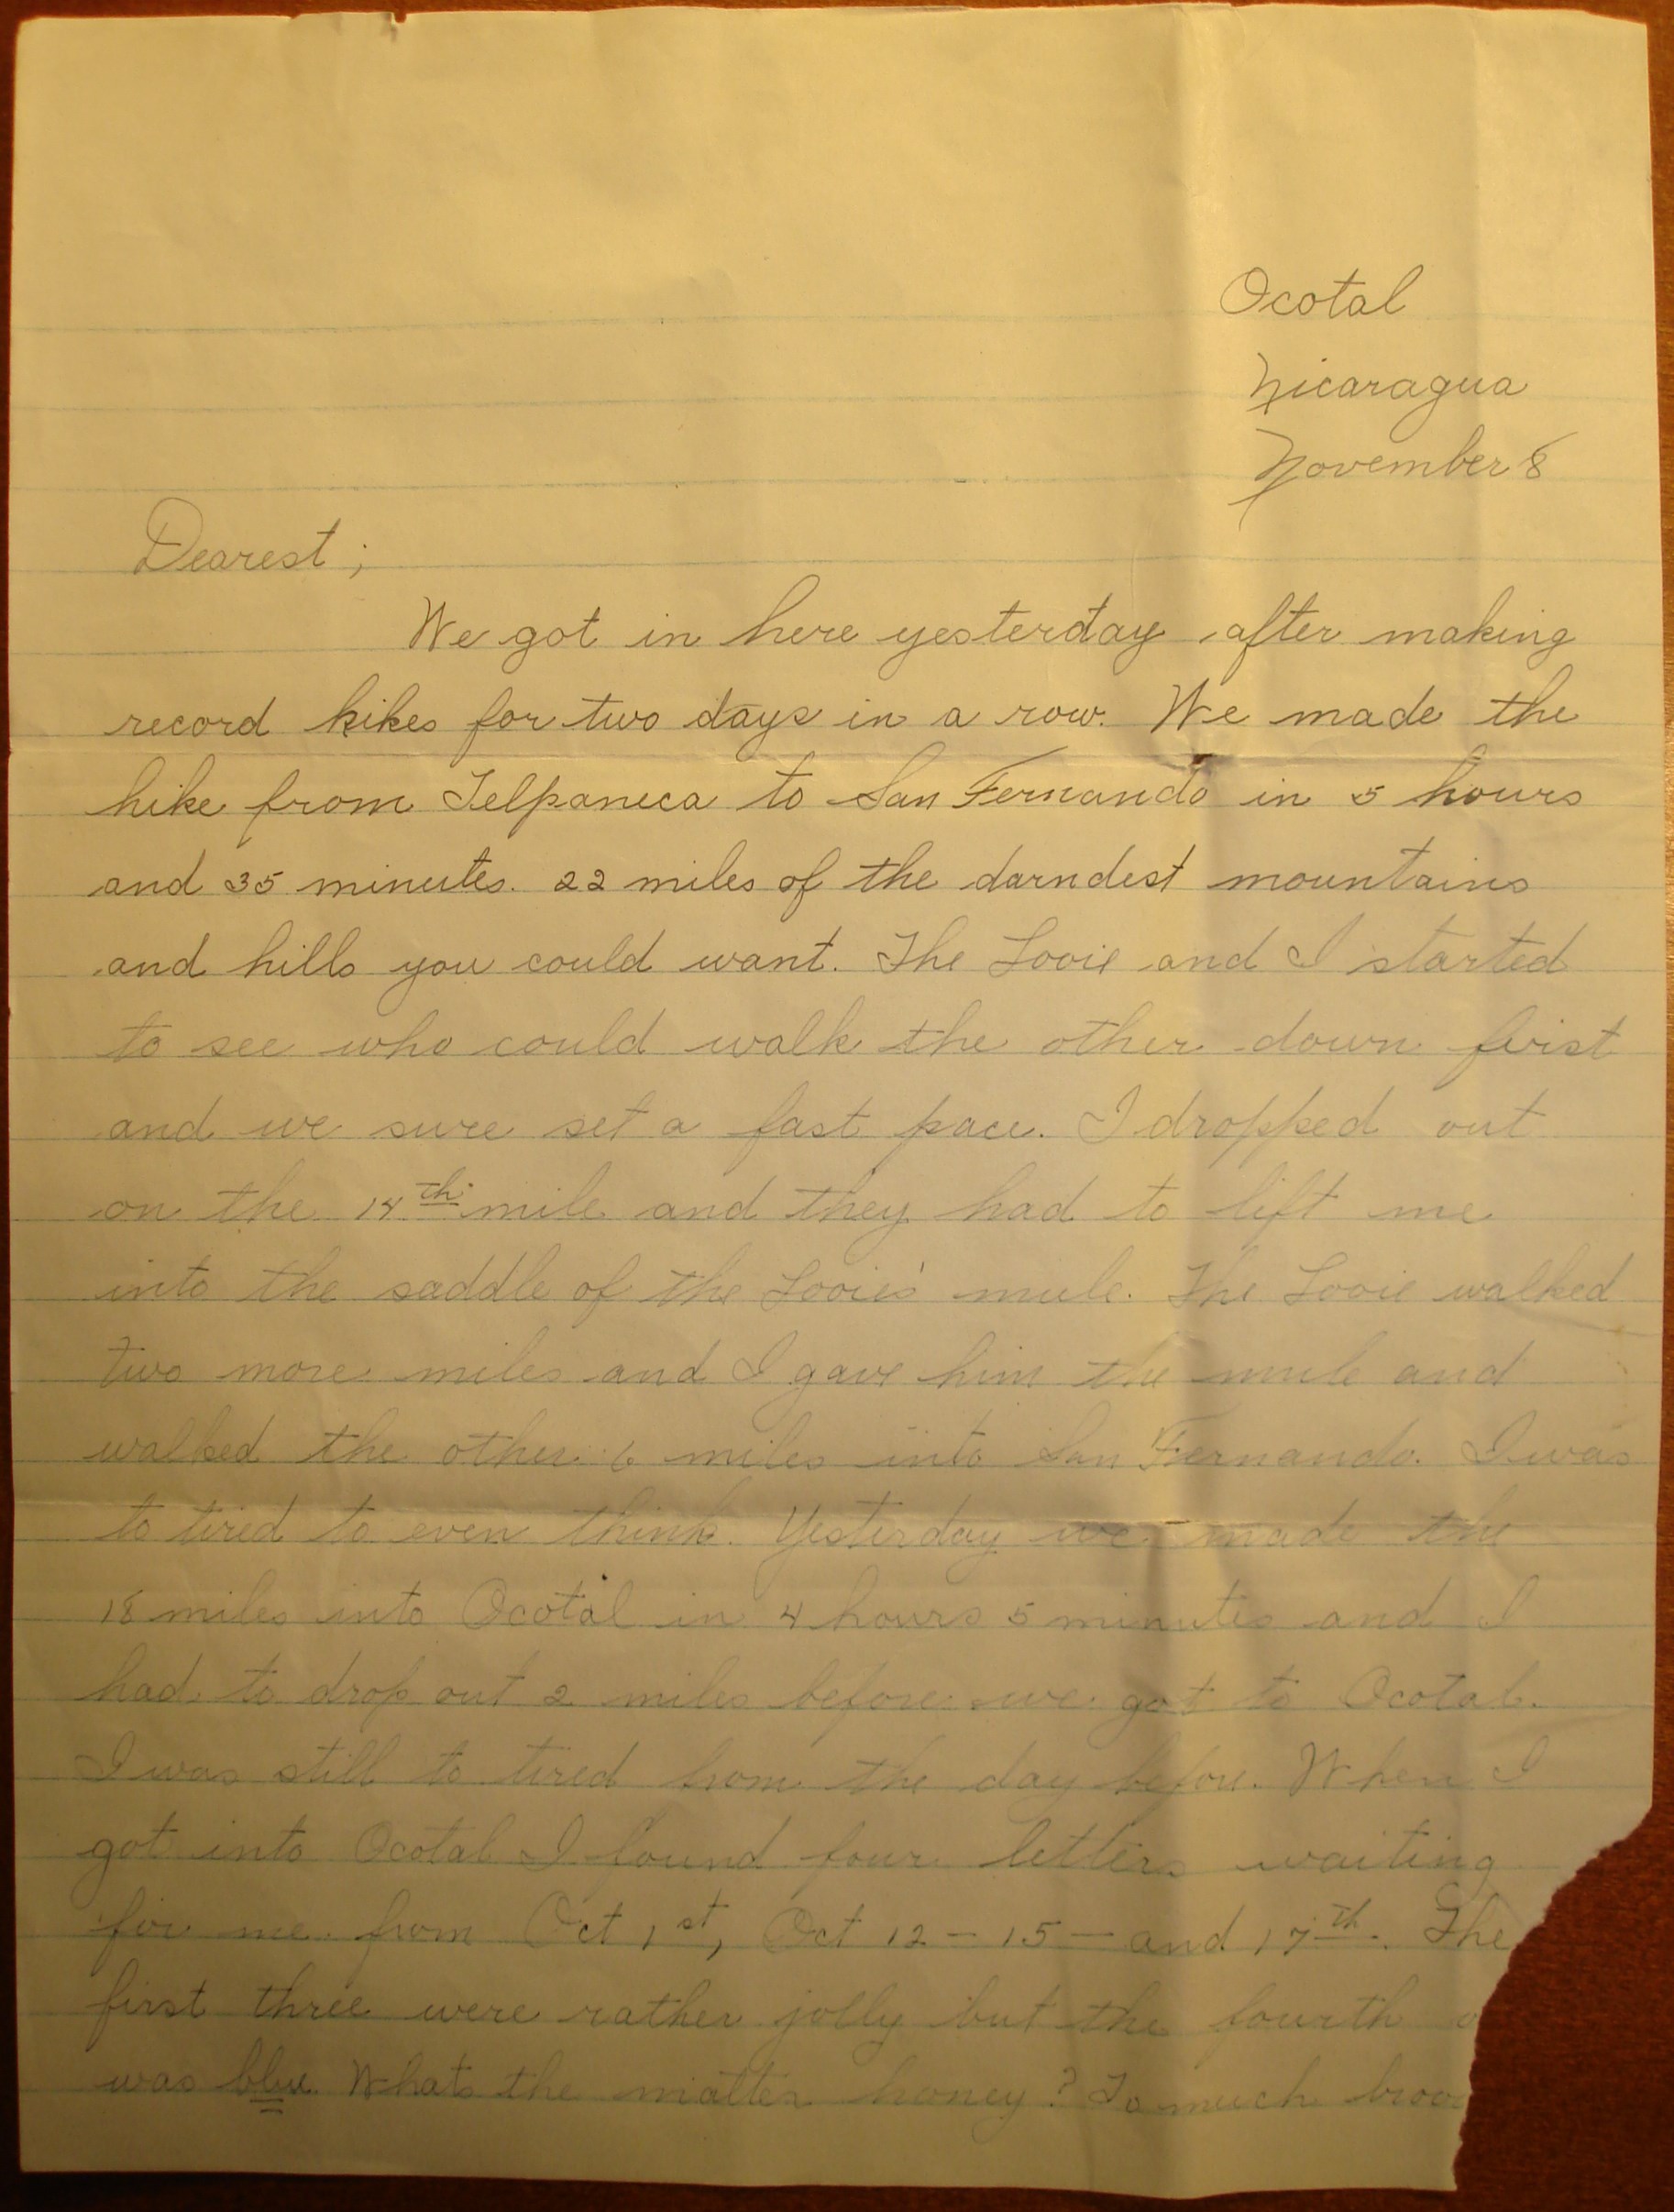 Ocotal
Nicaragua
November 8
Dearest;
We got in here yesterday after making
record hikes for two days in a row. We made the
hike from Telpaneca to San Fernando in 5 hours
and 35 minutes. 22 miles of the darndest mountains
and hills you could want. The Looie and I started
to see who could walk the other down first
and we sure set a fast pace. I dropped out
on the 14th mile and they had to lift me
into the saddle of the Looie's mule. The Looie walked
two more miles and I gave him the mule and
walked the other 6 miles into San Fernando. I was
to tired to even think. Yesterday we made the
18 miles into Ocotal in 4 hours 5 minutes and I
had to drop out 2 miles before we got to Ocotal.
I was still to tired from the day before. When I
got into Ocotal I found four letters waiting
for me from Oct 1st, Oct 12 – 15 – and 17th. The
first three were rather jolly but the fourth
was blue. Whats the matter honey? To much